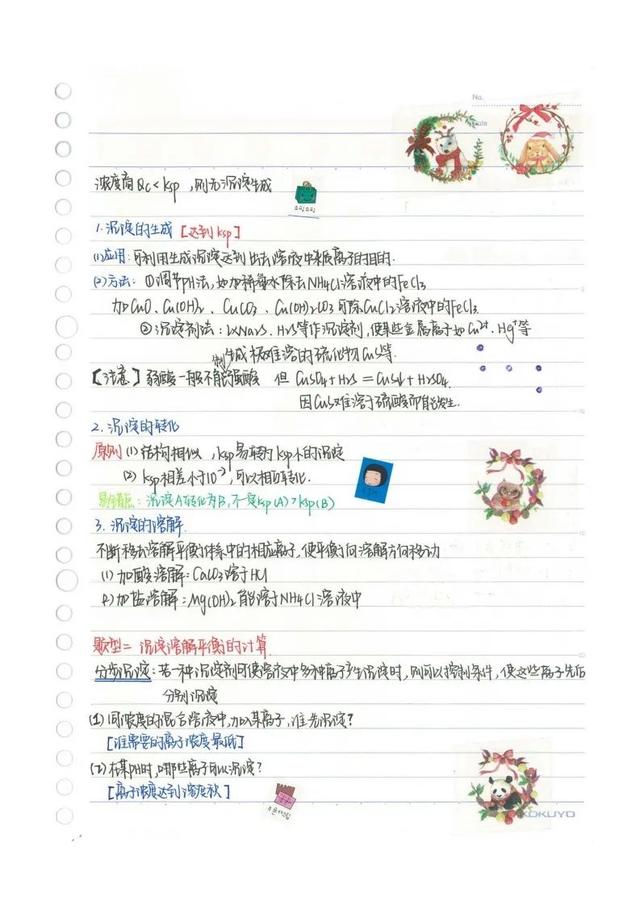 No.
Date
浓度商Qc<Ksp，则无沉淀生成
1.沉淀的生成[达到Ksp]
(1)应用：可利用生成沉淀达到除去溶液中杂质离子的目的.
(2)方法：①调节pH法，如加稀氨水除去NH4Cl溶液中的FeCl3
加CuO、Cu(OH)2、CuCO3、Cu2(OH)2CO3可除CuCl2溶液中的FeCl3.
②沉淀剂法：以Na2S、H2S等作沉淀剂，使某些金属离子如Cu2+、Hg2+等
生成极难溶的硫化物CuS等.
【注意】弱酸一般不能制强酸 但 CuSO4+H2S=CuS↓+H2SO4
因CuS难溶于硫酸而能发生.
2.沉淀的转化
原则(1)结构相似，Ksp易转为Ksp小的沉淀
(2)Ksp相差小于10-7，可以相互转化.
易错点：沉淀A转化为B，不一定Ksp(A)>Ksp(B)
3.沉淀的溶解
不断移去溶解平衡体系中的相应离子，使平衡向溶解方向移动
(1)加酸溶解：CaCO3溶于HCl
(2)加盐溶解：Mg(OH)2能溶于NH4Cl溶液中
题型二 沉淀溶解平衡的计算
分步沉淀：若一种沉淀剂可使溶液中多种离子产生沉淀时，则可以控制条件，使这些离子先后
分别沉淀
(1)同浓度的混合溶液中，加入某离子，谁先沉淀？
[谁需要的离子浓度最低]
(2)在某pH时，哪些离子可以沉淀？
[离子浓度达到浓度积]
KOKUYO